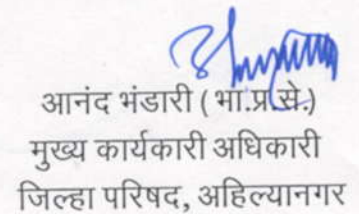 आनंद भंडारी ( भा.प्र.से.)
मुख्य कार्यकारी अधिकारी
जिल्हा परिषद, अहिल्यानगर